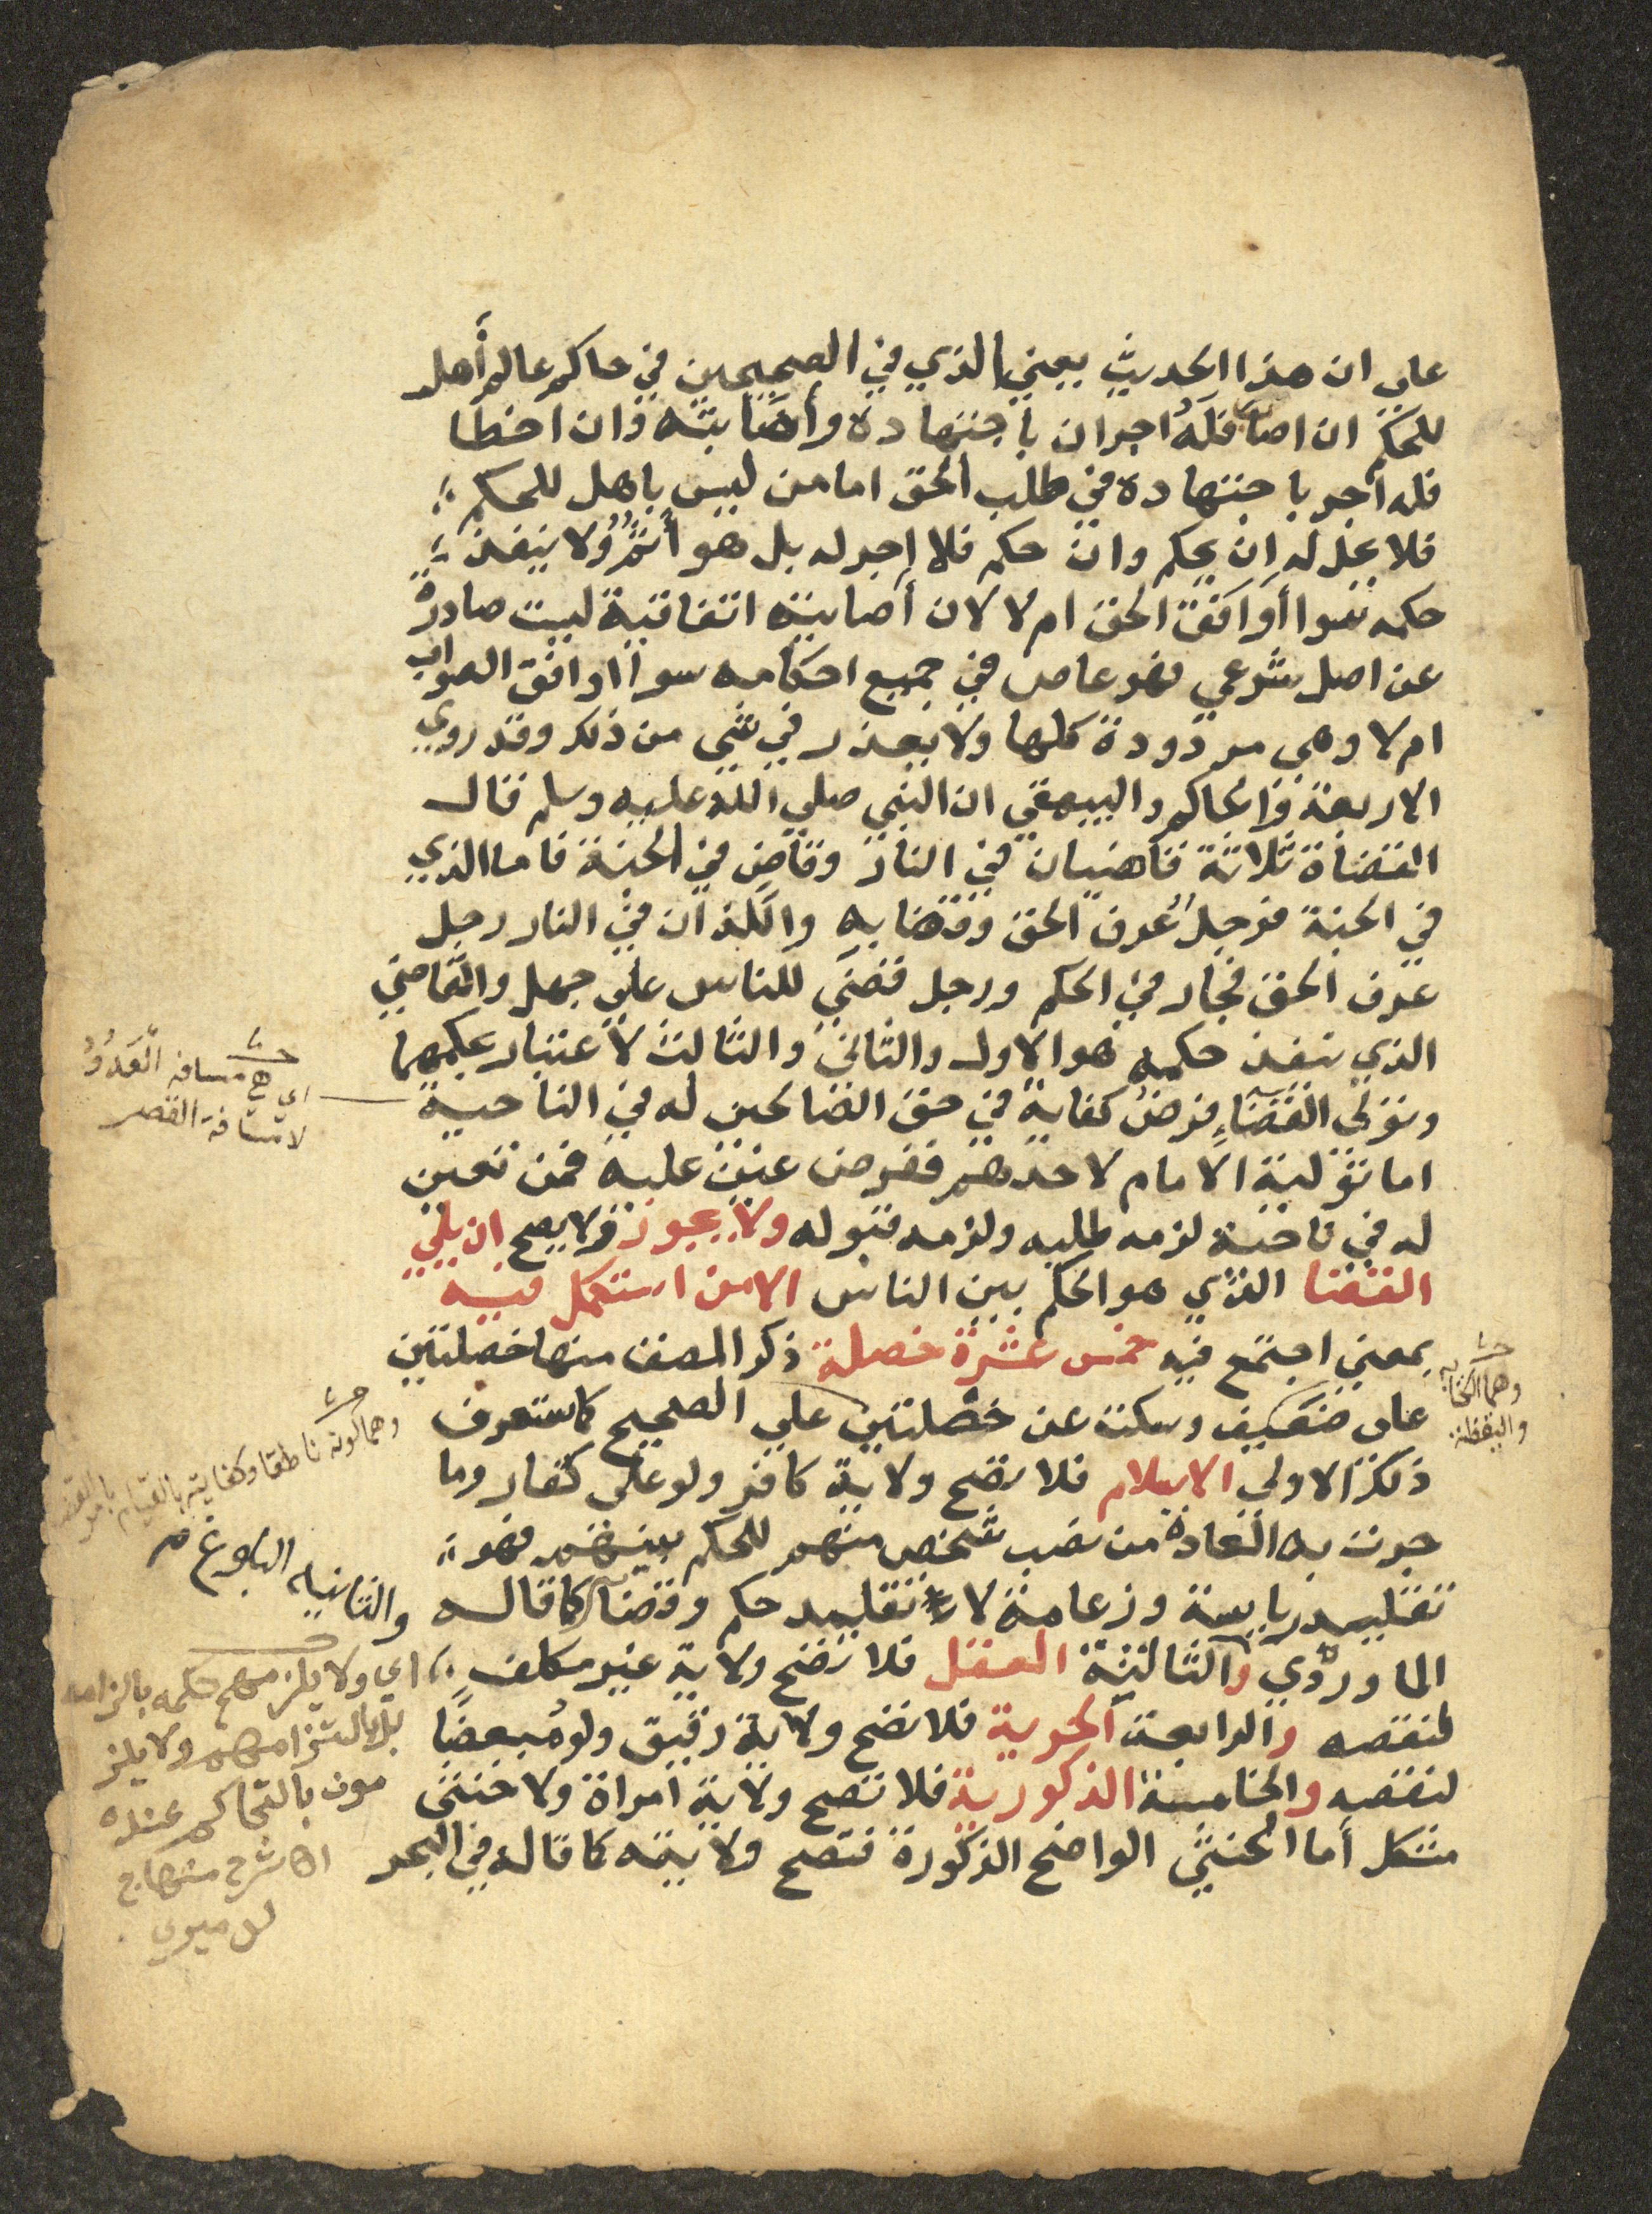 على ان هذا الحديث يعني الذي في الصحيحين في حاكم عالم أهل
للحكم ان اصاب فله اجران باجتهاده وأصابته وان اخطا
فله أجر باجتهاده في طلب الحق اما من ليس باهل للحكم
فلا يحل له ان يحكم وان حكم فلا اجر له بل هو أثم ولا ينفذ
حكمه سوا أوافق الحق ام لا لان أصابته اتفاقية ليست صادرة
عن اصل شرعي فهو عاص في جميع احكامه سوا اوافق الصواب
ام لا وهي مردودة كلها ولا يعذر في شي من ذلك وقد روي
الاربعة والحاكم والبيهقي ان النبي صلي الله عليه وسلم قال
القضاة ثلاثة قاضيان في النار وقاض في الجنة فاما الذي
في الجنة فرجل عرف الحق وقضا به واللذان في النار رجل
عرف الحق فجار في الحكم ورجل قضي للناس علي جهل والقاضي
الذي ينفذ حكمه هو الاول والثاني والثالث لا عتبار بحكمهما
وتولي القضاء فرض كفاية في حق الصالحين له في الناحية
اما تولية الامام لاحدهم ففرض عين عليه فمن تعين
له في ناحية لزمه طلبه ولزمه قبوله ولا يجوز ولا يصح ان يلي
القضا الذي هو الحكم بين الناس الا من استكمل فيه
بمعني اجتمع فيه خمس عشرة خصلة ذكر المصنف منها خصلتين
على ضعيف وسكت عن خصلتين علي الصحيح كما ستعرف
ذلك الاولي الاسلام فلا تصح ولاية كافر ولو علي كفار وما
جرت به العادة من نصب شخص منهم للحكم بينهم فهو
تقليد رياسة وزعامة لا تقليد حكم وقضا كما قاله
الماوردي والثالثة العقل فلا تصح ولاية غير مكلف
لنقصه والرابعة الحرية فلا تصح ولاية رقيق ولو مبعضا
لنقصه والخامسة الذكورية فلا تصح ولاية امراة ولا خنثي
مشكل أما الخنثي الواضح الذكورة فتصح ولايته كما قاله في البحر
اي مسافة العدو
لا مسافة القصر
وهما الكتابة
واليقظة
وهما كونه ناطقا وكفايته بالقيام بامر القضا
والثانيه البلوغ
اي ولا يلزمهم حكمه بالزامه
بل بالتزامهم ولا يلز
مون بالتحاكم عنده
اه شرح منهاج
للدميري